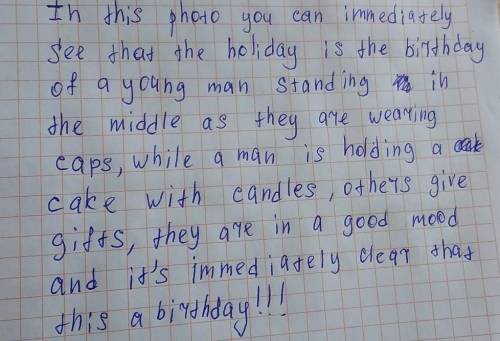 In this photo you can immediately
see that the holiday is the birthday
of a young man standing in
the middle as they are wearing
caps, while a man is holding a
cake with candles, others give
gifts, they are in a good mood
and it's immediately clear that
this a birthday!!!